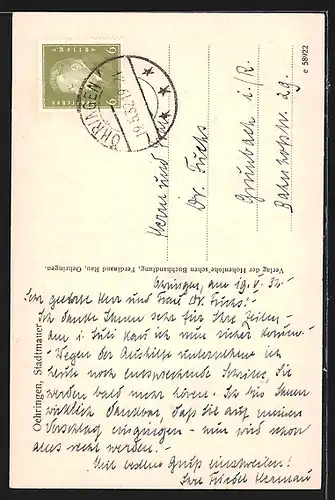 Oehringen, Stadtmauer
Verlag der Hohenlohe'schen Buchhandlung, Ferdinand Rau, Oehringen.
e 58922
9
9
ÖHRINGEN
19.5.32
Herrn und Frau
Dr. Fuchs
Grunbach i./R.
Bahnhofstr. 29.
Öhringen, am 19.V.32.
Sehr geehrte Herr und Frau Dr. Fuchs!
Ich danke Ihnen sehr für Ihre Zeilen -
am 1. Juli kann ich nun sicher kommen -
Wegen der Aushilfe unternehme ich
heute noch entsprechende Schritte, Sie
werden bald mehr hören. Ich bin Ihnen
wirklich dankbar, daß Sie auf meinen
Vorschlag eingingen - nun wird schon
alles recht werden. -
Mit bestem Gruß einstweilen!
Ihre Friedel